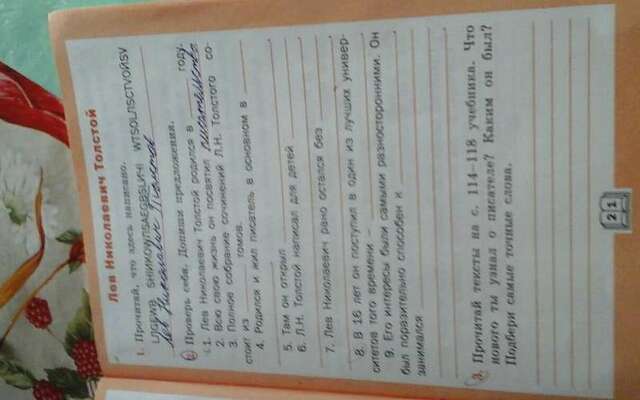 Лев Николаевич Толстой
1. Прочитай, что здесь написано.
Лев Николаевич Толстой
2. Проверь себя. Допиши предложения.
1. Лев Николаевич Толстой родился в году.
2. Всю свою жизнь он посвятил писательство
3. Полное собрание сочинений Л.Н. Толстого со-
стоит из томов.
4. Родился и жил писатель в основном в
5. Там он открыл
6. Л.Н. Толстой написал для детей
7. Лев Николаевич рано остался без
8. В 16 лет он поступил в один из лучших универ-
ситетов того времени –
9. Его интересы были самыми разносторонними. Он
был поразительно способен к
занимался
3. Прочитай тексты на с. 114–118 учебника. Что
нового ты узнал о писателе? Каким он был?
Подбери самые точные слова.
21